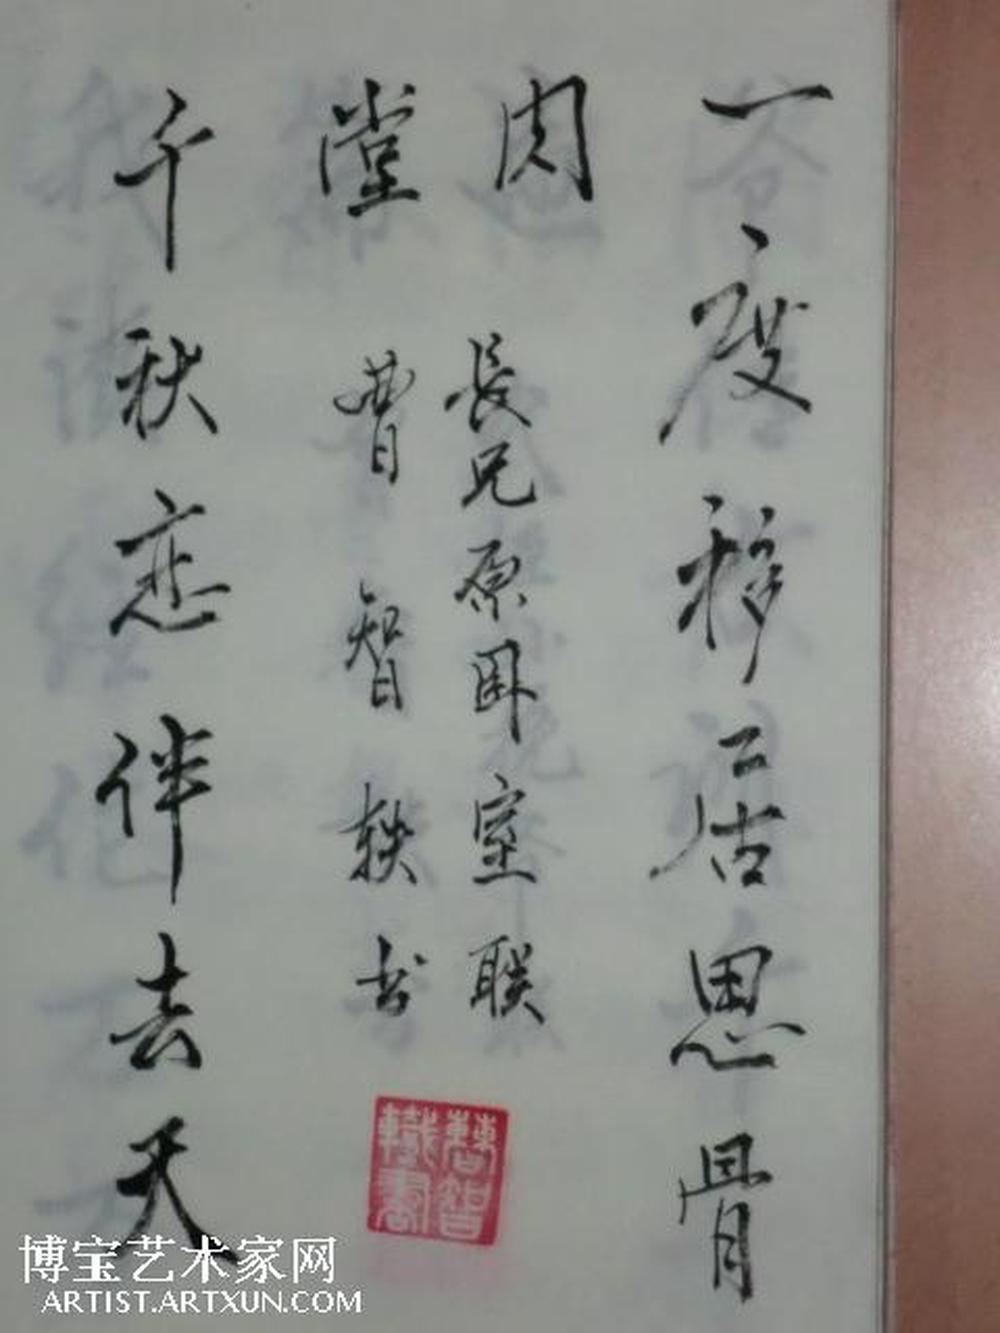 一度移居思骨
肉
長兄原卧室联
堂
曹智轶书
千秋恋伴去天
博宝艺术家网
ARTIST.ARTXUN.COM